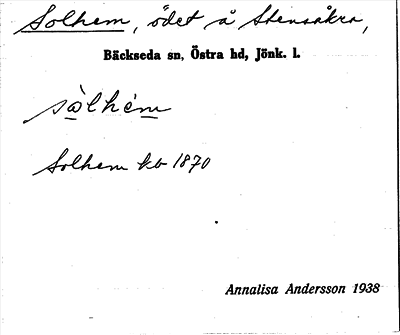 Solhem, ödet å Stensåkra,
Bäckseda sn, Östra hd, Jönk. l.
sòlhém
Solhem kb 1870
Annalisa Andersson 1938